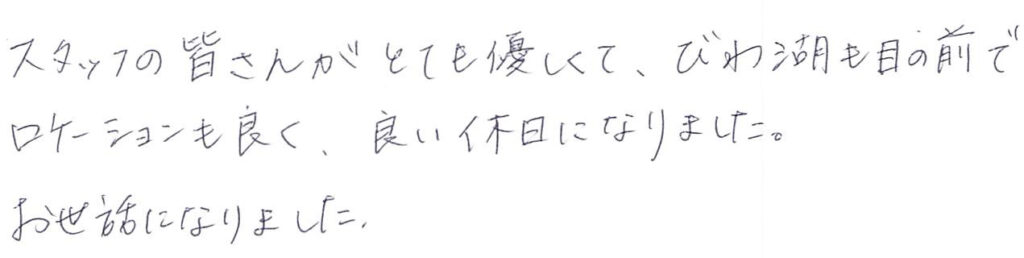 スタッフの皆さんがとても優しくて、びわ湖も目の前で
ロケーションも良く、良い休日になりました。
お世話になりました.